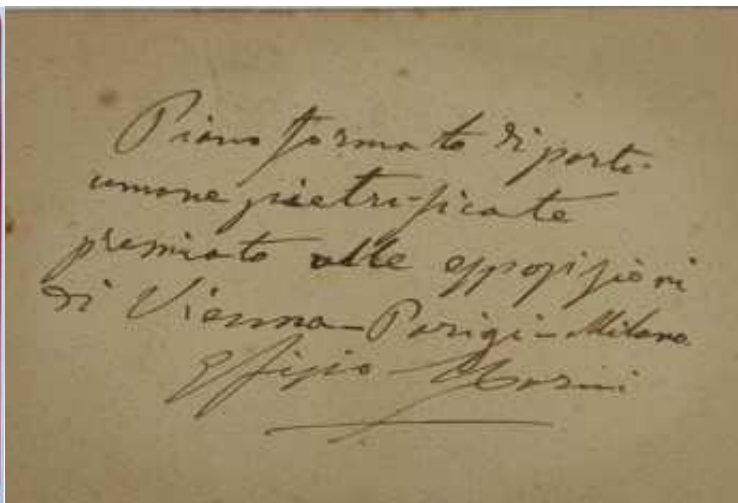 Piano formato di parti
umane pietrificate
premiato alle esposizioni
di Vienna - Parigi - Milano
Efisio Marini